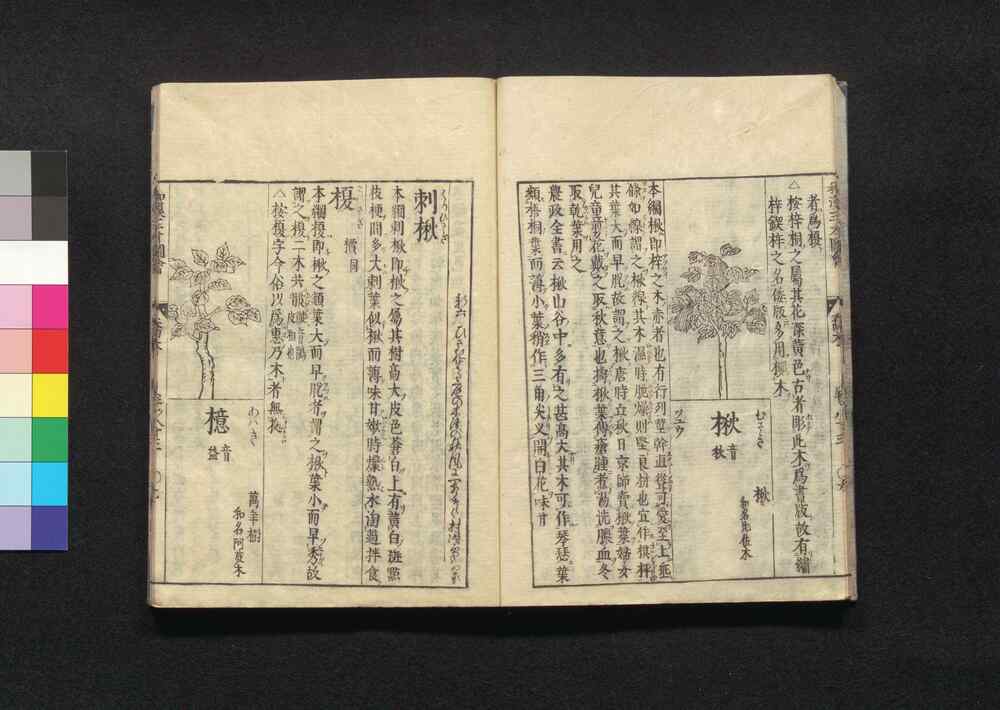 者爲榎
△桉梓桐之屬其花深黄色古者彫此木爲書版故有繡
梓鋟梓之名倭版多用櫻木
楸
音秋
楸
和名比佐木
本綱楸即梓之木赤者也有行列莖幹直聳可愛至上垂
條如線謂之楸線其木濕時脆燥則堅良材也宜作棋枰
其葉大而早脫故謂之楸唐時立秋日京師賣楸葉婦女
兒童剪花戴之取秋意也擣楸葉傅瘡腫煮湯洗膿血冬
取乾葉用之
農政全書云楸山谷中多有之甚高大其木可作琴瑟葉
類梧桐葉而薄小葉稍作三角尖叉開白花味甘
刺楸
本綱刺楸即楸之屬其樹高大皮色蒼白上有黄白斑點
枝梗間多大刺葉似楸而薄味甘嫩時煠熟水淘過拌食
榎
檟同
本綱榎即楸之類葉大而早脫者謂之楸葉小而早秀故
謂之榎二木共
△按榎字今俗以爲惠乃木者無據
檍
音益
萬年樹
和名阿波木